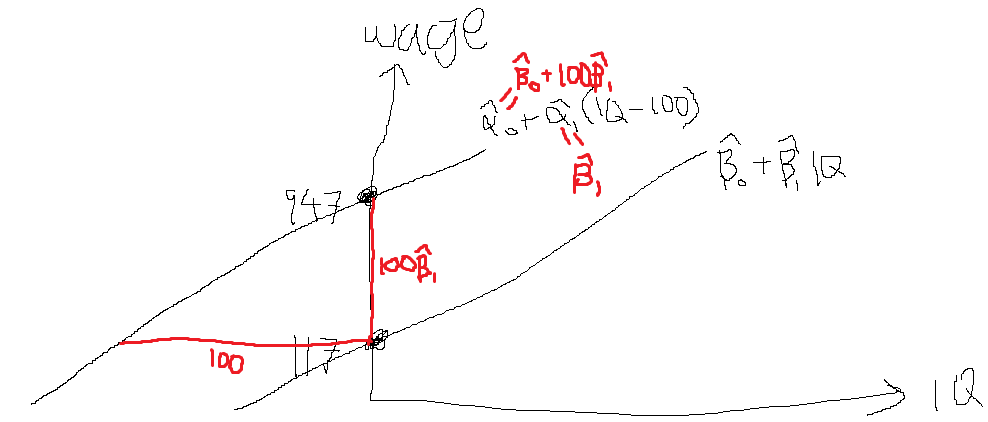 wage
β̂₀+100β̂₁
α̂₀+α̂₁(IQ-100)
β̂₁
β̂₀+β̂₁IQ
947
100β̂₁
117
100
IQ